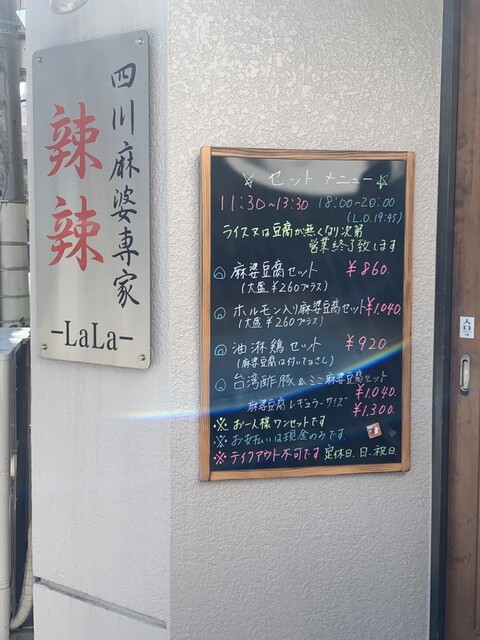 四川麻婆専家
辣辣
-LaLa-
セットメニュー
11:30~13:30 18:00~20:00
(L.O.19:45)
ライス又は豆腐が無くなり次第
営業終了致します
麻婆豆腐セット ¥860.
(大盛 ¥260プラス)
ホルモン入り麻婆豆腐セット ¥1,040.
(大盛 ¥260プラス)
油淋鶏セット ¥920.
(麻婆豆腐は付いてるさし)
台湾酢豚&ミニ麻婆豆腐セット
¥1,040.
麻婆豆腐レギュラーサイズ ¥1,300.
※お一人様ワンセットです
※お支払いは現金のみです
※テイクアウト不可です 定休日、日、祝日.
入口